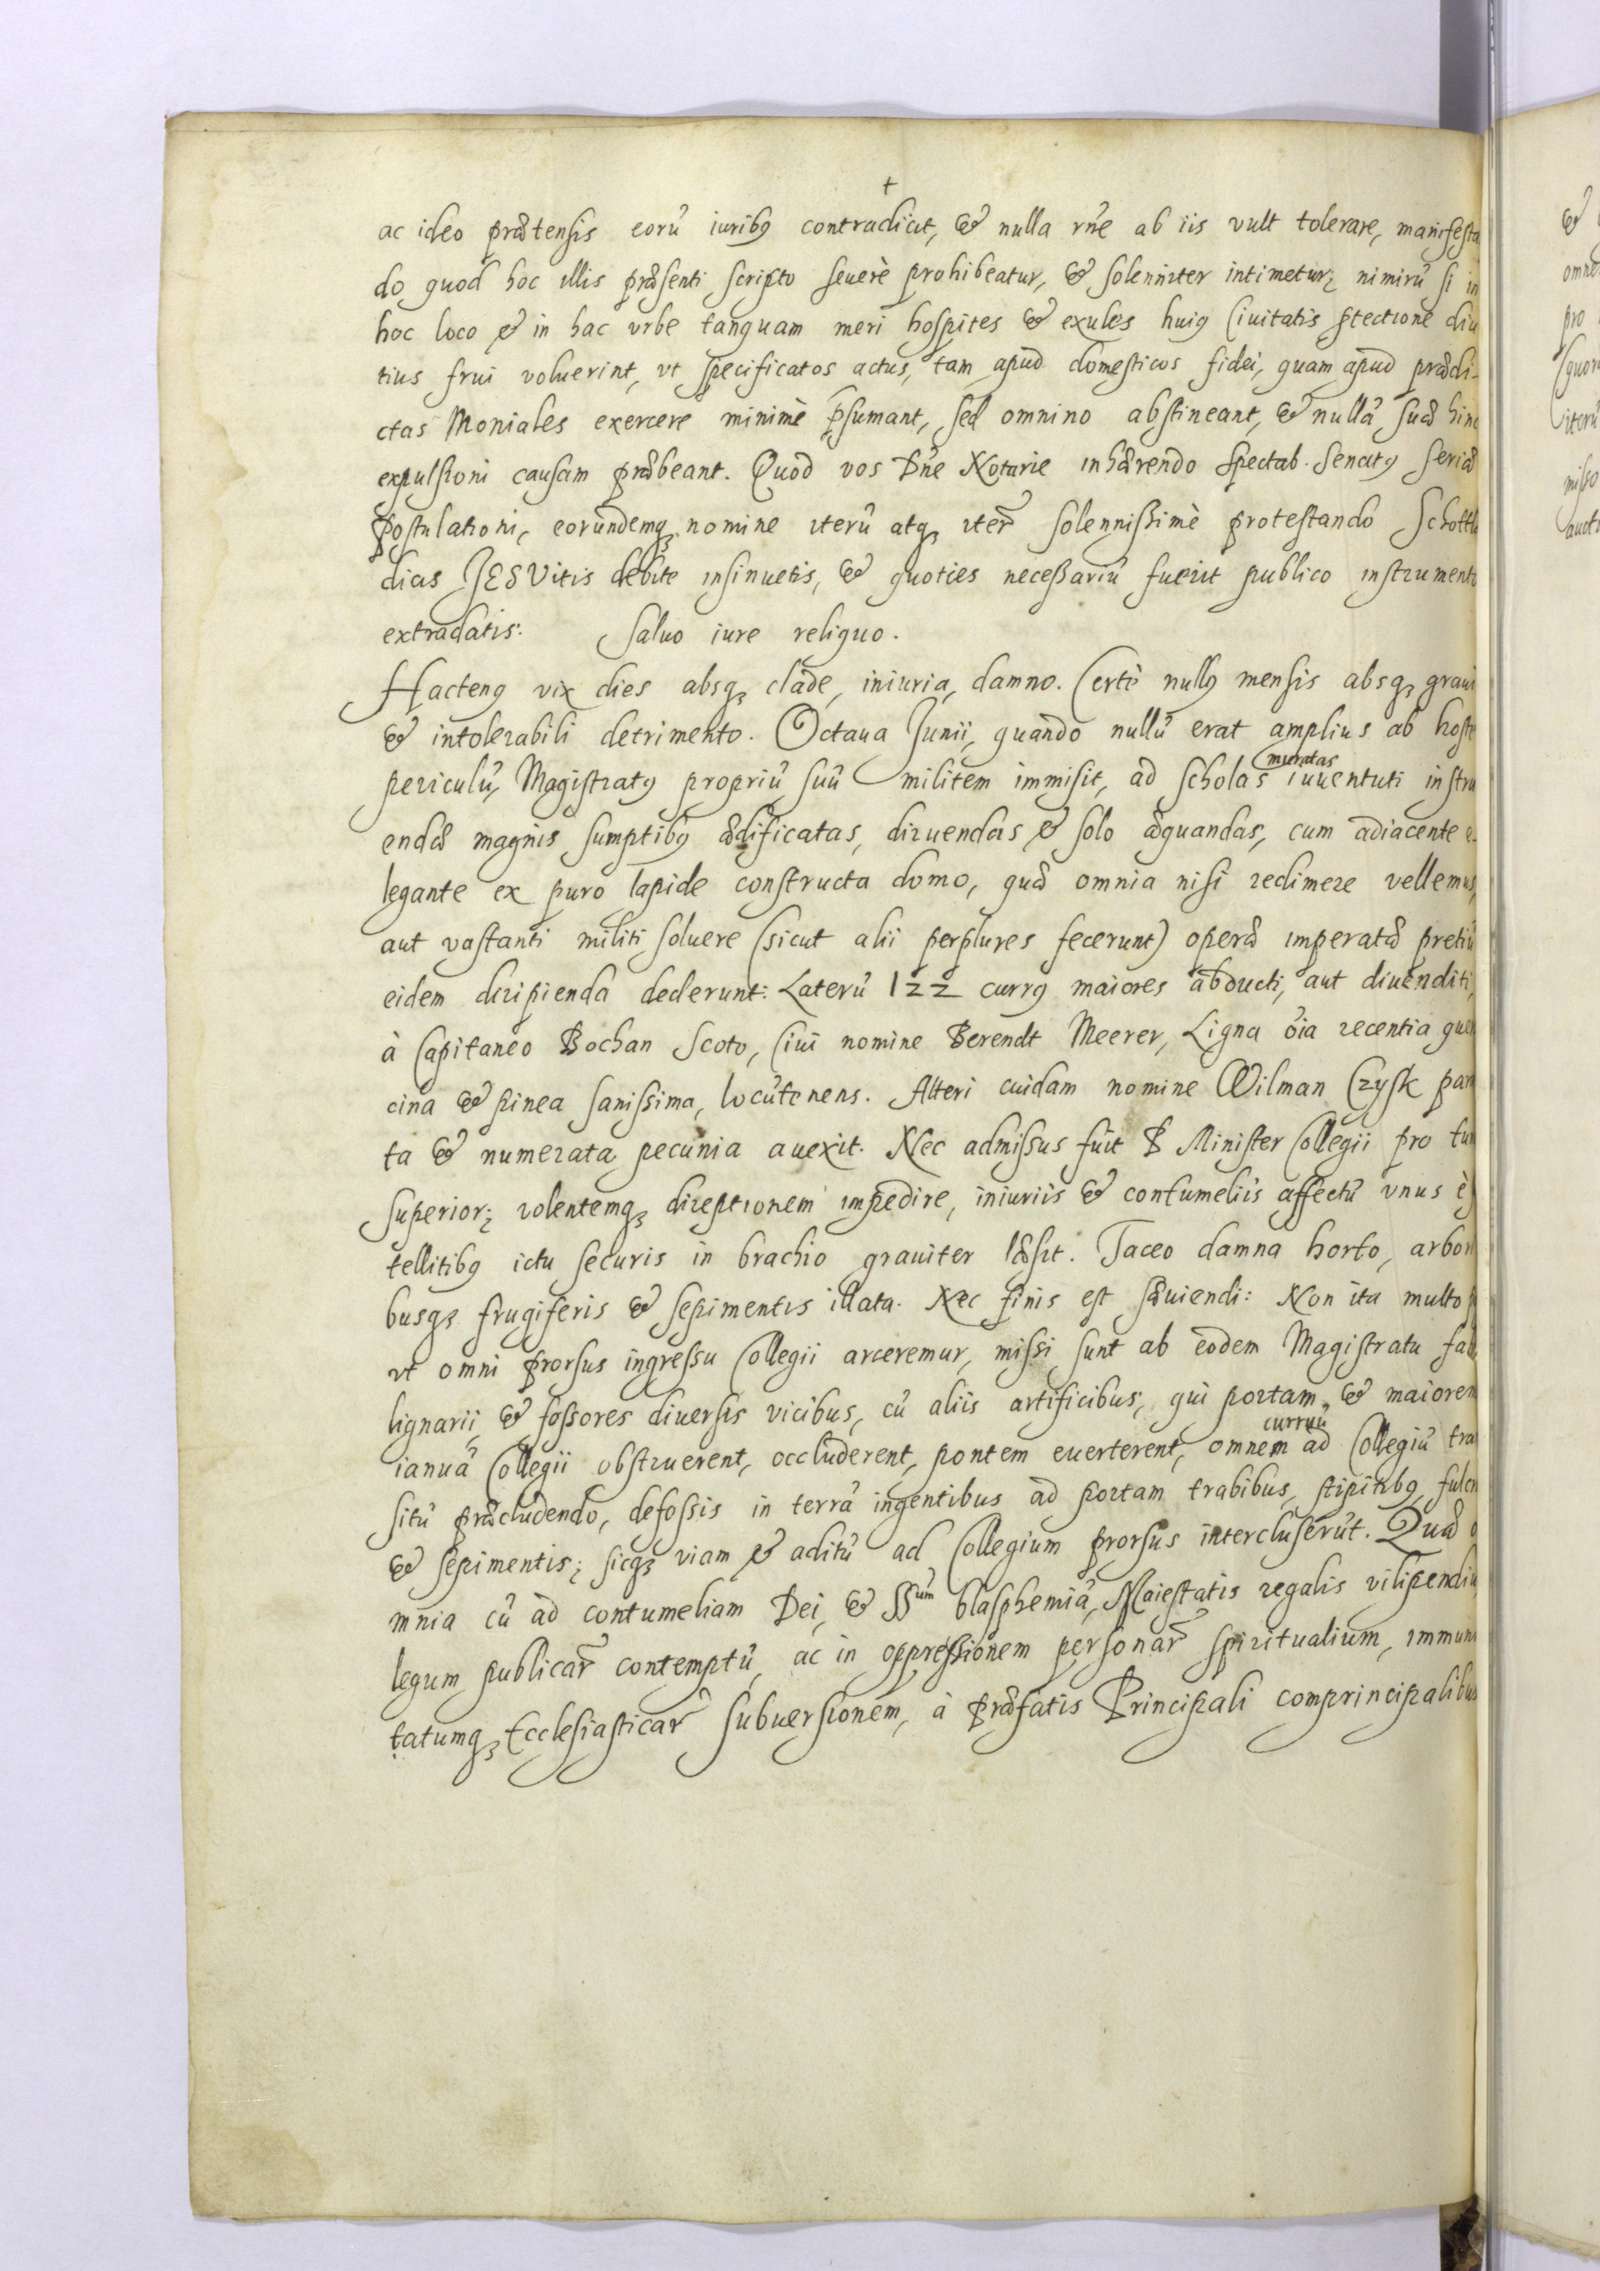 +
ac ideo prætensis eorũ iuribꝰ contradicit, & nulla rñe ab iis vult tolerare, manifesta
do quod hoc illis præsenti scripto seuerè prohibeatur, & solenniter intimetur; nimirũ si in
hoc loco & in hac vrbe tanquam meri hospites & exules huiꝰ Ciuitatis ꝓtectione diu
tius frui voluerint, vt specificatos actus, tam apud domesticos fidei, quam apud prædi-
ctas Moniales exercere minimè p̃sumant, sed omnino abstineant, & nullã suæ hinc
expulsioni causam præbeant. Quod vos Dñe Notarie inhærendo Spectab. Senatꝰ seriæ
postulationi, eorundemqꝫ nomine iterũ atqꝫ iter̃ solennissimè protestando Schottlã
dicis JESVitis debite insinuetis, & quoties necessariũ fuerit publico instrumento
extradatis: Saluo iure reliquo.
Hactenꝰ vix dies absqꝫ clade, iniuria, damno. Certè nullꝰ mensis absqꝫ graui
& intolerabili detrimento. Octaua Junii, quando nullũ erat amplius ab hoste
periculũ, Magistratꝰ propriũ suũ militem immisit, ad scholas iuuentuti instru
muratas
endæ magnis sumptibꝰ ædificatas, diruendas & solo æquandas, cum adiacente e-
legante ex puro lapide constructa domo, quæ omnia nisi redimere vellemus,
aut vastanti militi soluere (sicut alii perplures fecerunt) operæ imperatæ pretiũ
eidem diripienda dederunt: Laterũ 122 currꝰ maiores abducti, aut diuenditi,
à Capitaneo Bochan Scoto, Ciui nomine Berendt Meerer, Ligna õia recentia quer
cina & pinea sanissima, locũtenens. Alteri cuidam nomine Wilman Czysk para
ta & numerata pecunia auexit. Nec admissus fuit P Minister Collegii pro tun
Superior; volentemqꝫ direptionem impedire, iniuriis & contumeliis affectũ vnus è
tellitibꝰ ictu securis in brachio grauiter læsit. Taceo damna horto, arbori
busqꝫ frugiferis & sepimentis illata. Nec finis est sæuiendi: Non ita multo
vt omni prorsus ingressu Collegii arceremur, missi sunt ab eodem Magistratu fab
lignarii, & fossores diuersis vicibus, cũ aliis artificibus, qui portam & maiorem
ianuã Collegii obstruerent, occluderent, pontem euerterent, omnem ad Collegiũ tra
curruũ
sitũ præcludendo, defossis in terrã ingentibus ad portam trabibus, stipitibꝰ, fulcr
& sepimentis; sicqꝫ viam & aditũ ad Collegium prorsus intercluserũt. Quæ o
mnia cũ ad contumeliam Dei, & SSum blasphemiã, Maiestatis regalis vilipendiũ
legum publicar̃ contemptũ, ac in oppressionem personar̃ spiritualium, immuni
tatumqꝫ Ecclesiasticar̃ subuersionem, à præfatis Principali comprincipalibus